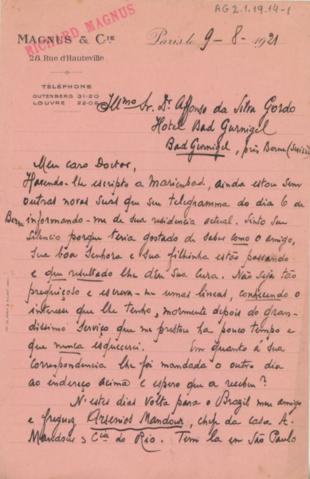 AG2.1.19.14-1
RICHARD MAGNUS
MAGNUS & Cie
28, Rue d'Hauteville
Paris le 9-8-1921
TÉLÉPHONE
GUTENBERG 31-20
LOUVRE 22-09
Illmo Sr. Dr. Affonso da Silva Gordo
Hotel Bad Gurnigel
Bad Gurnigel, près Berne (Suisse)
Meu caro Doctor,
Havendo-lhe escripto a Marienbad, ainda estou sem
outras novas Suas que seu telegramma do dia 6 de
Berne informando-me de sua residencia actual. Sinto seu
silencio porque teria gostado de saber como o amigo,
sua boa Senhora e sua filhinha estão passando
e que resultado lhe deu sua cura. Não seja tão
preguiçoso e escreva-me umas lineas, conhecendo o
interesse que lhe tenho, mormente depois do gran-
dissimo serviço que me prestou ha pouco tempo e
que nunca esquecerei. Em quanto á sua
correspondencia lhe foi mandada o outro dia
ao indereço acima e espero que a recebeu?
N'estes dias volta para o Brazil meu amigo
e freguez Arsenios Mandour, chefe da casa A.
Mandour & Cia do Rio. Tem la em São Paulo